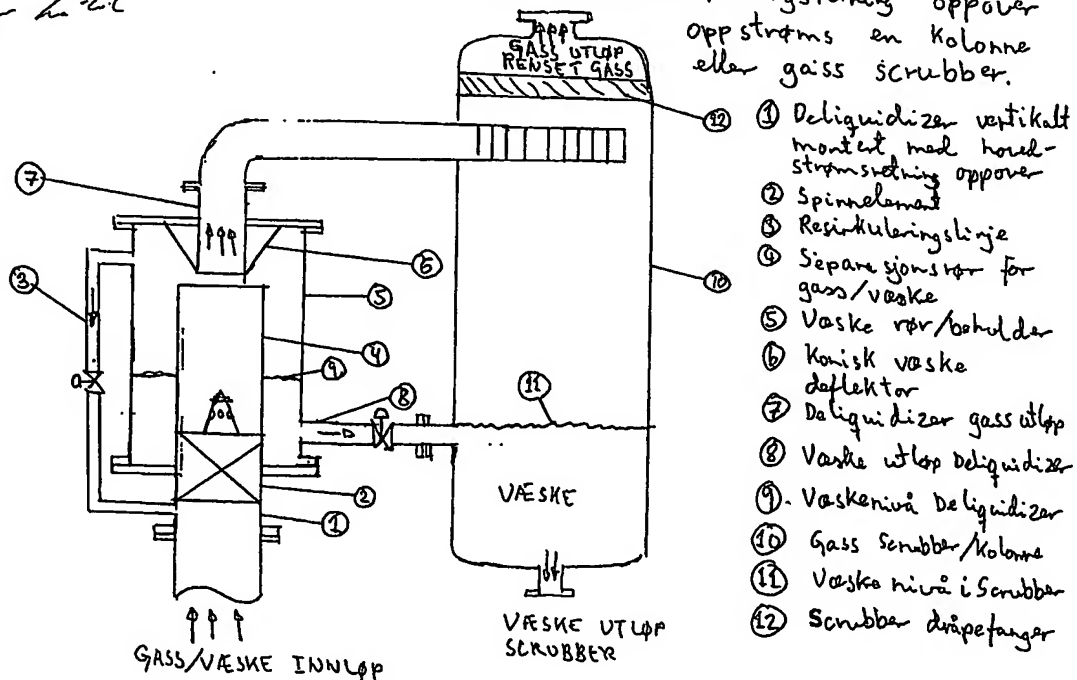 oppover
oppstrøms en kolonne
eller gass scrubber.
GASS UTLØP
RENSET GASS
① Deliquidizer vertikalt
montert med hoved-
strømsretning oppover
② Spinnelement
③ Resirkuleringslinje
④ Separasjonsrør for
gass/væske
⑤ Væske rør/beholder
⑥ Konisk væske
deflektor
⑦ Deliquidizer gass utløp
⑧ Væske utløp Deliquidizer
⑨. Væskenivå Deliquidizer
⑩ Gass Scrubber/Kolonne
⑪ Væske nivå i Scrubber
⑫ Scrubber dråpefanger
⑫
⑦
⑥
③
⑤
⑩
④
⑨
⑧
⑪
②
①
VÆSKE
VÆSKE UTLØP
SCRUBBER
GASS/VÆSKE INNLØP